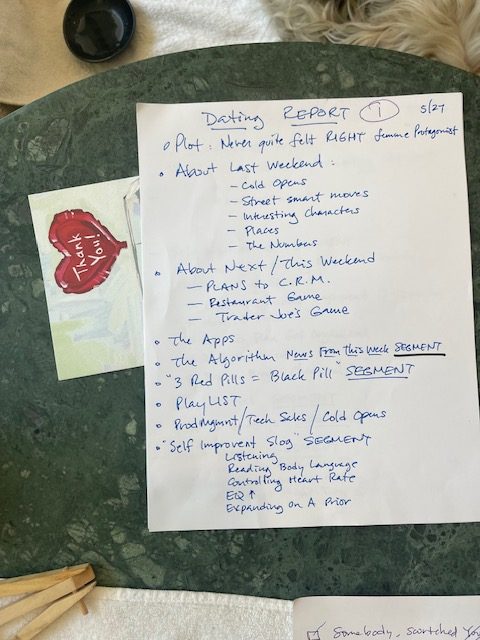 Dating REPORT 1 5/27
o Plot: Never quite felt RIGHT femme Protagonist
• About Last Weekend:
- Cold Opens
- Street smart moves
- Interesting Characters
- Places
- The Numbers
• About Next/This Weekend
- PLANS to C.R.M.
- Restaurant Game
- Trader Joe's Game
• The Apps
• The Algorithm News From This Week SEGMENT
• "3 Red Pills = Black Pill" SEGMENT
• PlayLIST
• ProdMgmnt/Tech Sales/Cold Opens
• "Self Improvent Slog" SEGMENT
Listening
Reading Body Language
Controlling Heart Rate
EQ ↑
Expanding on A Prior
Thank You!
☑ Somebody